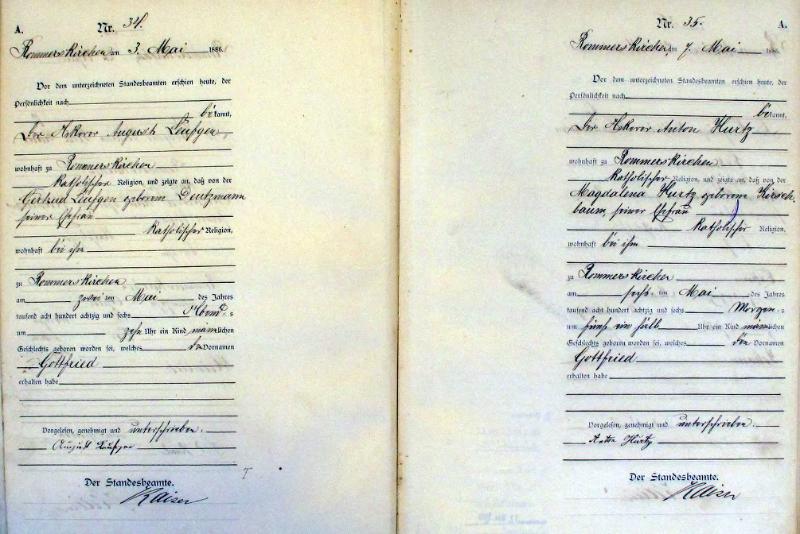 A.
Nr. 34.
Rommerskirchen am 3. Mai 1886.
Vor dem unterzeichneten Standesbeamten erschien heute, der
Persönlichkeit nach
bekannt,
der Ackerer August
wohnhaft zu Rommerskirchen
katholischer Religion, und zeigte an, daß von der
Gertrud geborene
seiner Ehefrau
katholischer Religion,
wohnhaft bei ihm
zu Rommerskirchen
am zweiten Mai des Jahres
tausend acht hundert achtzig und sechs
um zehn Uhr ein Kind männlichen
Geschlechts geboren worden sei, welches den Vornamen
Gottfried
erhalten habe
Vorgelesen, genehmigt und unterschrieben.
August
Der Standesbeamte.
Kaiser
Nr. 35.
A.
Rommerskirchen am 7. Mai 1886.
Vor dem unterzeichneten Standesbeamten erschien heute, der
Persönlichkeit nach
bekannt,
der Ackerer Anton Hurtz
wohnhaft zu Rommerskirchen
katholischer Religion, und zeigte an, daß von der
Magdalena Hurtz geborene Kirsch-
baum, seiner Ehefrau
katholischer Religion,
wohnhaft bei ihm
zu Rommerskirchen
am sechsten Mai des Jahres
tausend acht hundert achtzig und sechs Morgens
um fünf ein halb Uhr ein Kind männlichen
Geschlechts geboren worden sei, welches den Vornamen
Gottfried
erhalten habe
Vorgelesen, genehmigt und unterschrieben.
Anton Hurtz
Der Standesbeamte.
Kaiser